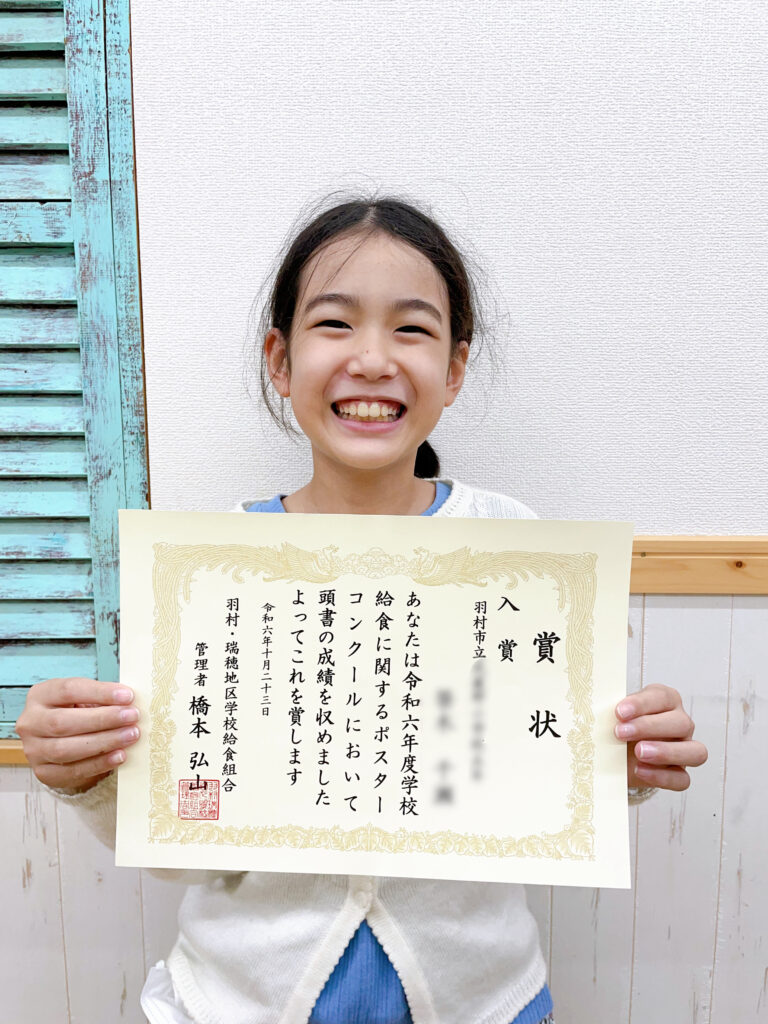 賞状
入賞
羽村市立
あなたは令和六年度学校
給食に関するポスター
コンクールにおいて
頭書の成績を収めました
よってこれを賞します
令和六年十月二十三日
羽村・瑞穂地区学校給食組合
管理者 橋本 弘山